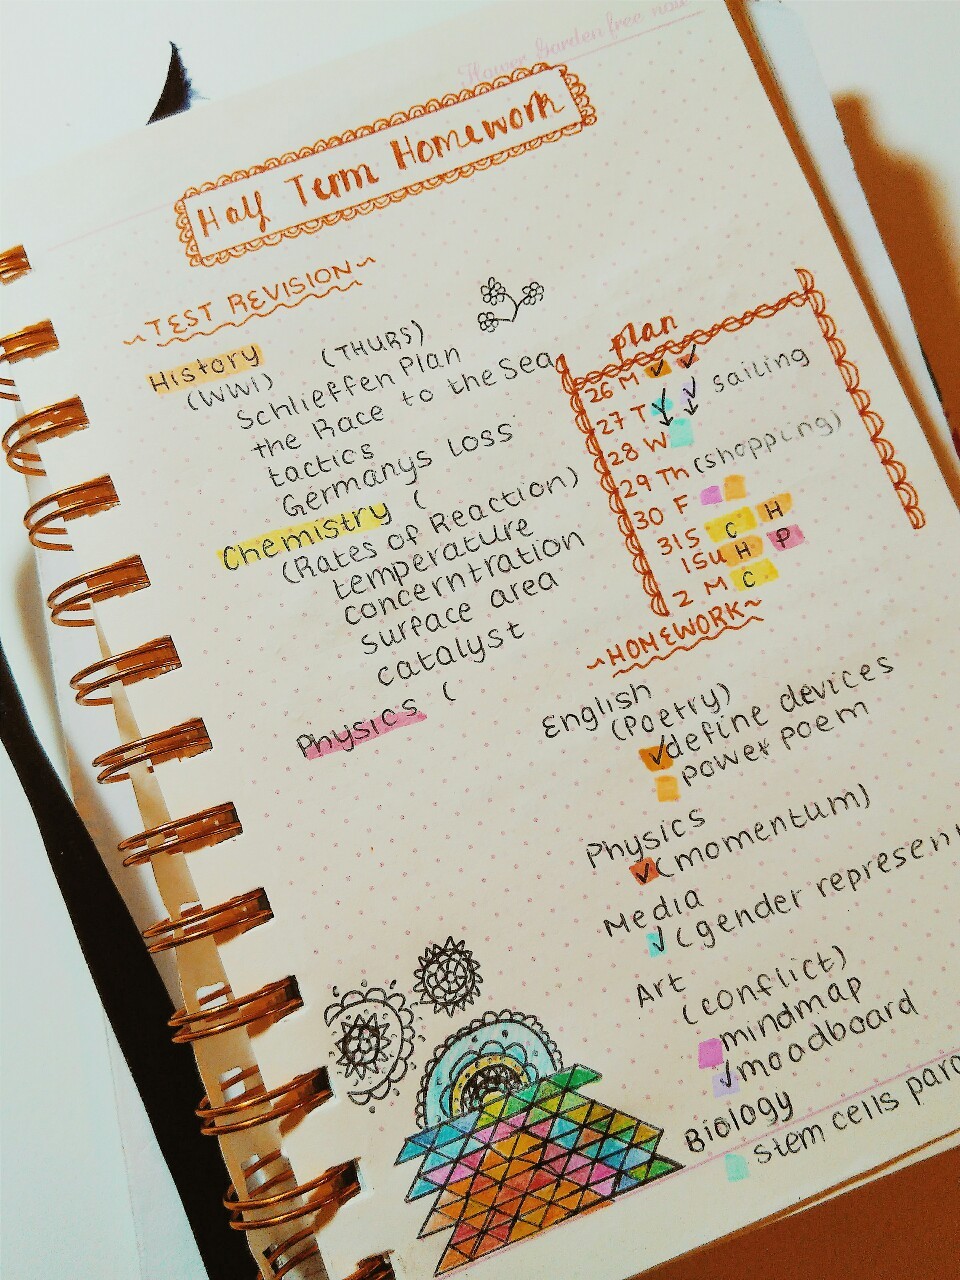 Flower Garden free now
Half Term Homework
~TEST REVISION~
History (THURS)
(WW1)
Schlieffen Plan
the Race to the Sea
tactics
Germanys Loss
Chemistry (
(Rates of Reaction)
temperature
concerntration
surface area
catalyst
Physics (
plan
26 M ✓ ✓
27 T ✓ ✓ sailing
28 W
29 Th (shopping)
30 F
31 S C H
1 SU H P
2 M C
~HOMEWORK~
English
(Poetry)
✓ define devices
power poem
Physics
✓ (momentum)
Media
✓ (gender represen
Art
(conflict)
mindmap
✓ moodboard
Biology
stem cells para